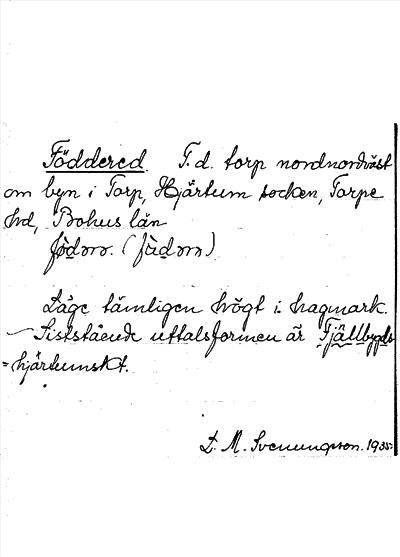 Föddered. F.d. torp nordnordväst
om byn i Torp, Hjärtum socken, Torpe
hd, Bohus län
Läge tämligen högt i hagmark.
– Sistståeude uttalsformen är Fjällbygds
-hjärtumskt.
D. M. Svenungsson. 1935.